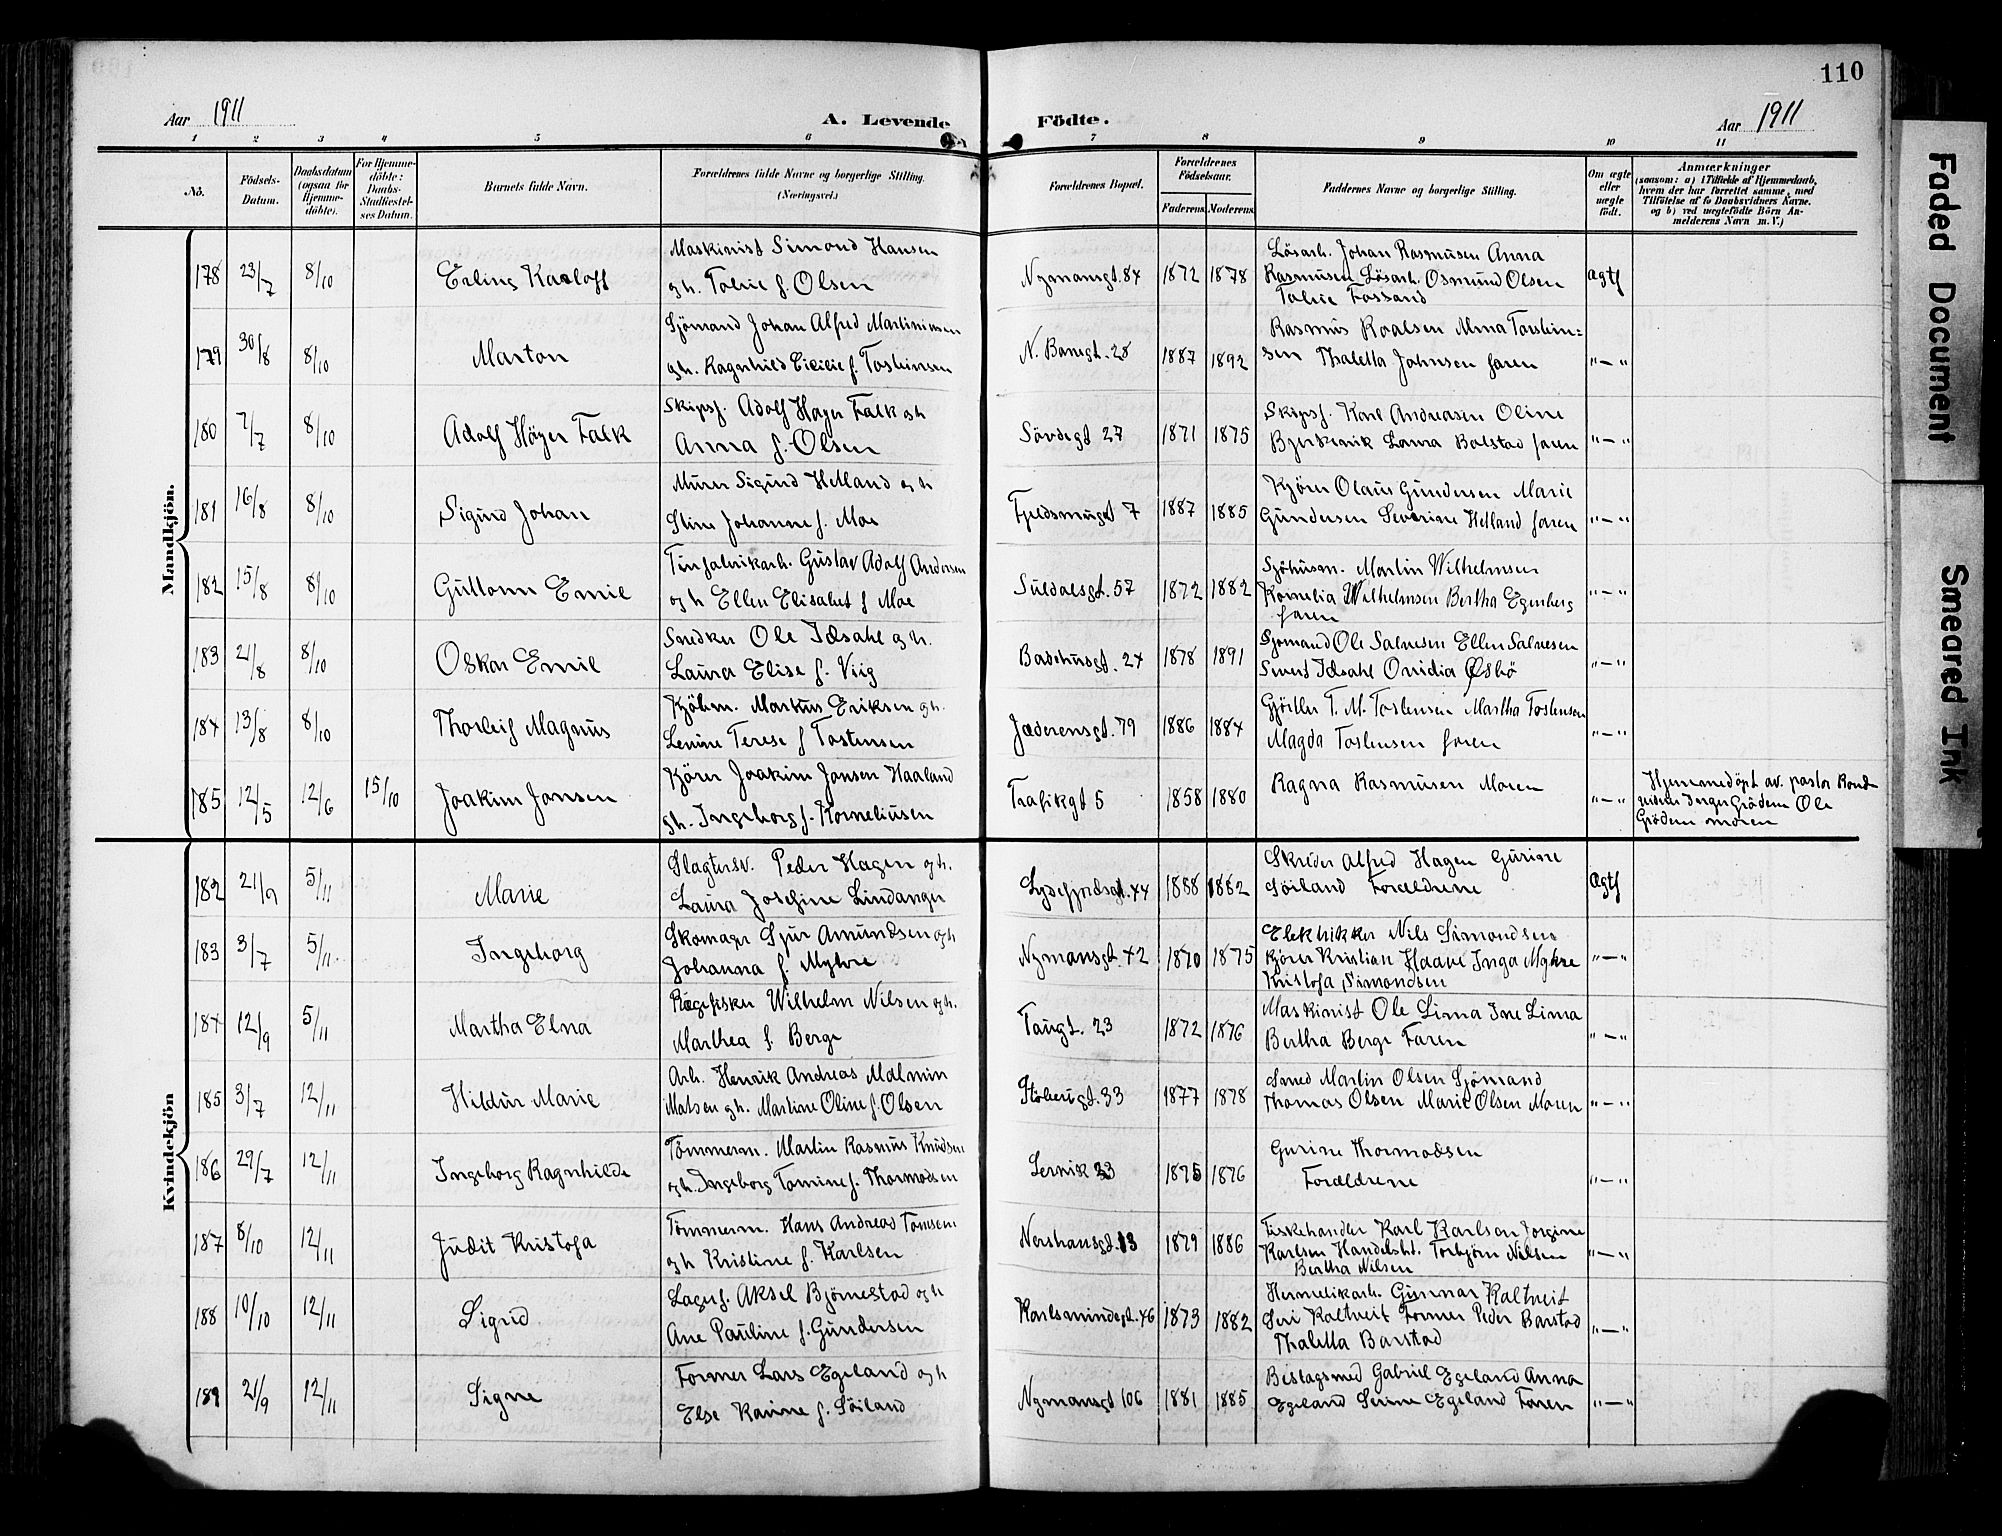 110
Aar 1911
A. Levende Födte.
Aar 1911
1 2 3 4 5 6 7 8 9 10 11
No.
Födsels-Datum.
Daabsdatum (ogsaa for Hjemme-döbte).
For Hjemme-döbte: Daabs-Stadfæstel-ses Datum.
Barnets fulde Navn.
Forældrenes fulde Navne og borgerlige Stilling. (Næringsvei.)
Forældrenes Bopæl.
Forældrenes Födselsaar.
Faderens. Moderens.
Faddernes Navne og borgerlige Stilling.
Om ægte eller uægte födt.
Anmærkninger
(saasom: a) i Tilfælde af Hjemmedaab, hvem der har forrettet samme, med Tilföielse af to Daabsvidners Navne. og b) ved uægtefödte Börn An-melderens Navn m. V.)
Mandkjön.
178 23/7 8/10 Erling Karloff
Maskinist Simond Hansen
gh. Talie f. Olsen
Nymansgt. 84 1872 1878
Lösarb. Johan Rasmusen Anna
Rasmusen Lösarb. Osmund Olsen
Talie Fossand
ægtf
179 30/8 8/10 Marton
Sjömand Johan Alfred Martiniusen
gh. Ragnhild Cicilie f. Torkinsen
N. Banegt. 28 1887 1892
Rasmus Roalsen
Thaletta Johnsen faren
"—"
180 7/7 8/10 Adolf Höyer Falk
Skipsf. Adolf Hoyer Falk gh
Anna f. Olsen
Sövdegt 27 1871 1875
Skipsf. Karl Andreasen Oline
Bjerkevik Laura Bolstad faren
"—"
181 16/8 8/10 Sigurd Johan
Murer Sigurd Helland gh
Stine Johanne f. Moe
7 1887 1885
Kjörer Olaus Gundersen Marie
Gundersen Severine Helland faren
"—"
182 15/8 8/10 Guttorm Emil
Tinfabrikarb. Gustav Adolf Andersen
og h Ellen Elisabet f Moe
Suldalsgt. 57 1872 1882
Sjöhusm. Martin Wilhelmsen
Kornelia Wilhelmsen Bertha Egenberg
faren
"—"
183 21/8 8/10 Oskar Emil
Snedker Ole Idsahl gh.
Laura Elise f. Viig
Badehusgt. 24 1878 1891
Sjomand Ole Salvesen Ellen Salvesen
Sivert Idsahl Ovidia Østbö
"—"
184 13/8 8/10 Thorleif Magnus
Kjöbm. Markus Eriksen gh.
Levine Terese f Tostensen
Jæderensgt. 79 1886 1884
Gjörtler T. M. Tostensen Martha Tostensen
Magda Tostensen faren
"—"
185 12/5 12/6 15/10 Joakim Jonsen
Kjörer Joakim Jonsen Haaland
gh. Ingeborg f. Korneliusen
Trafikgt 5 1858 1880
Ragna Rasmusen Moren
"—"
Hjemmedöpt av. pastor
Grödem Ole
Grödem moren
Kvindekjön
182 21/9 5/11 Marie
Slagtersv. Peder Hagen gh.
Laura Josefine Lindanger
Lydefjordsgt. 44 1888 1882
Skreder Alfred Hagen Gurine
Söiland Forældrene
Ægtf
183 3/7 5/11 Ingeborg
Skomager Sjur Amundsen gh
Johanna f. Myhre
Nymansgt. 42 1870 1875
Elektrikker Nils Simondsen
Kjörer Kristian Haave Inga Myhre
Kristofa Simondsen
"—"
184 12/9 5/11 Martha Elna
Rægefisker Wilhelm Nilsen gh.
Marthea f. Berge
Taugt. 23 1872 1876
Maskinist Ole Lima Ine Lima
Bertha Berge Faren
"—"
185 3/7 12/11 Hildur Marie
Arb. Henrik Andreas Malmin
Matsen gh. Martine Oline f. Olsen
Stöberigt. 33 1877 1878
Smed Martin Olsen Sjömand
Thomas Olsen Marie Olsen Moren
"—"
186 29/7 12/11 Ingeborg Ragnhilde
Tömmerm. Martin Rasmus Knudsen
gh. Ingeborg Tomine f. Thormodsen
33 1875 1876
Gurine Thormodsen
Forældrene
"—"
187 8/10 12/11 Judit Kristofa
Tömmerm. Hans Andreas Tomsen
og h Kristine f. Karlsen
13 1879 1886
Fiskehandler Karl Karlsen Jorgine
Karlsen Handelsbt. Torbjörn Nilsen
Bertha Nilsen
"—"
188 10/10 12/11 Sigrid
Lagerf. Aksel Björnestad og h
Ane Pauline f. Gundersen
Karlsmindegt. 46 1873 1882
Hermetikarb. Gunnar Kaltveit
Siri Kaltveit Former Peder Barstad
Thaletta Barstad
"—"
189 21/9 12/11 Signe
Former Lars Egeland og h
Else Karine f. Söiland
Nymansgt 106 1881 1885
Beslagsmed Gabriel Egeland Anna
Egeland Serine Egeland Faren
"—"
Faded Document
Smeared Ink